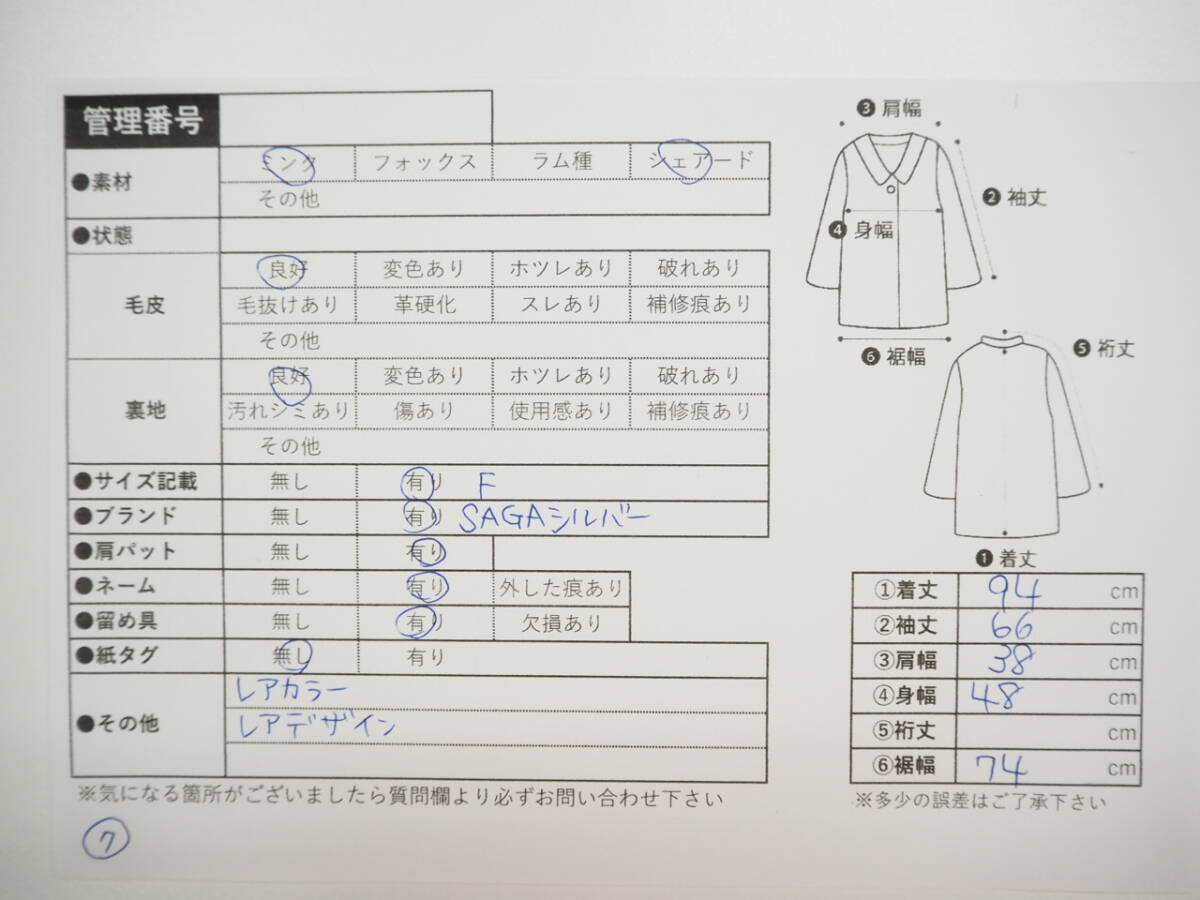 管理番号
●素材 ミンク フォックス ラム種 シェアード
その他
●状態
毛皮 良好 変色あり ホツレあり 破れあり
毛抜けあり 革硬化 スレあり 補修痕あり
その他
裏地 良好 変色あり ホツレあり 破れあり
汚れシミあり 傷あり 使用感あり 補修痕あり
その他
●サイズ記載 無し 有り F
●ブランド 無し 有り SAGAシルバー
●肩パット 無し 有り
●ネーム 無し 有り 外した痕あり
●留め具 無し 有り 欠損あり
●紙タグ 無し 有り
●その他 レアカラー
レアデザイン
※気になる箇所がございましたら質問欄より必ずお問い合わせ下さい
⑦
❸肩幅
❷袖丈
❹身幅
❻裾幅
❺裄丈
❶着丈
①着丈 94 cm
②袖丈 66 cm
③肩幅 38 cm
④身幅 48 cm
⑤裄丈 cm
⑥裾幅 74 cm
※多少の誤差はご了承下さい